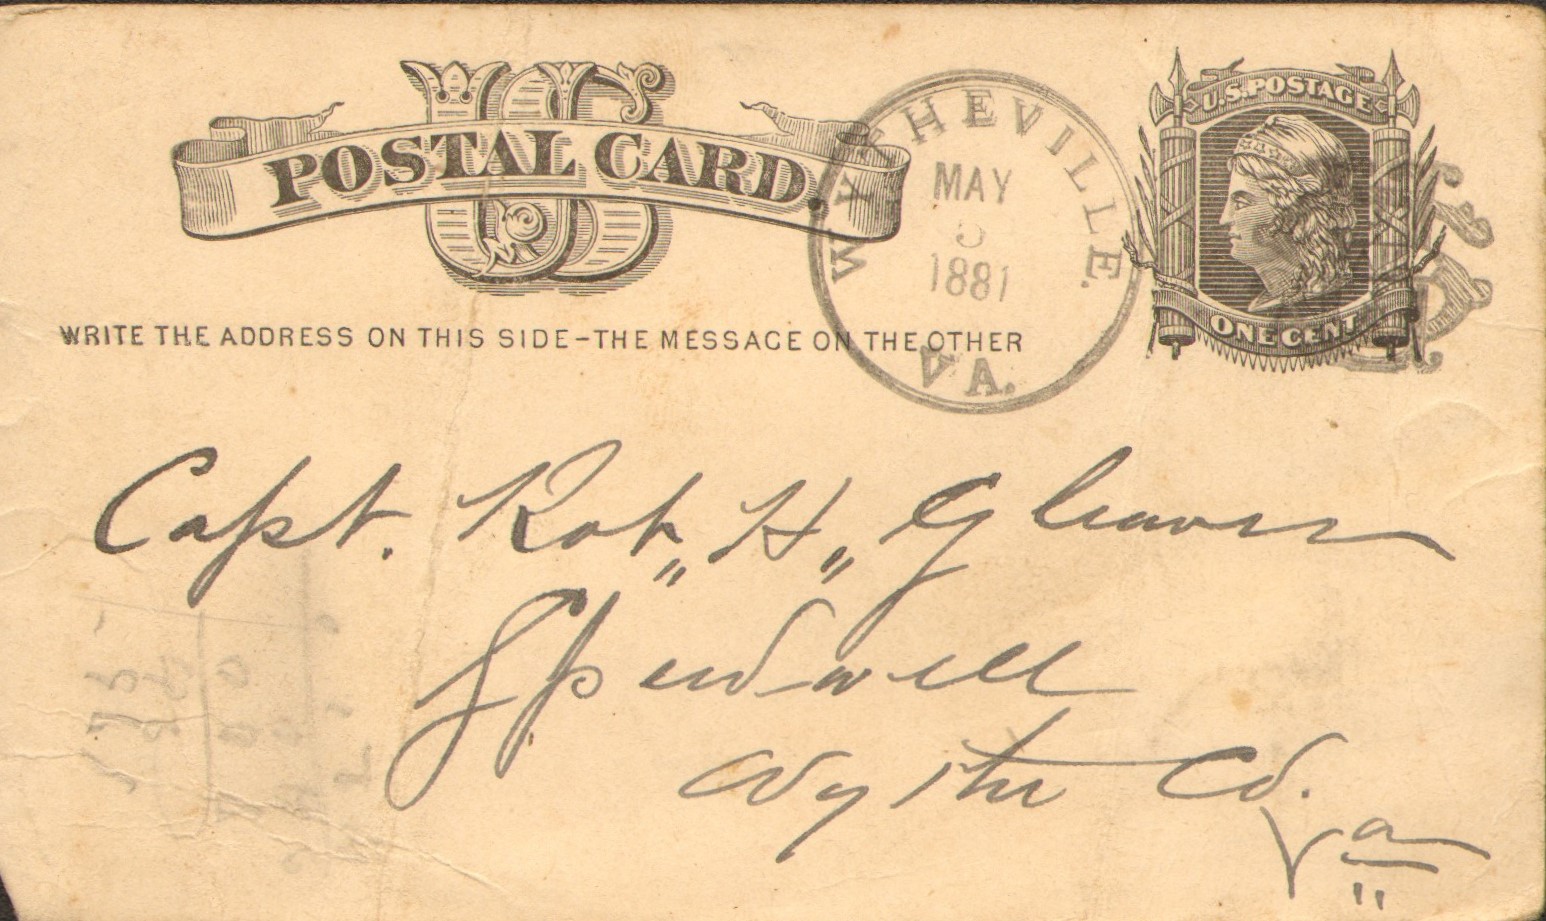 US
POSTAL CARD.
WYTHEVILLE.
MAY
1881
VA.
U.S. POSTAGE
ONE CENT
WRITE THE ADDRESS ON THIS SIDE-THE MESSAGE ON THE OTHER
Capt. Robt, H,, Gleaves
Speedwell
Wythe Co.
Va